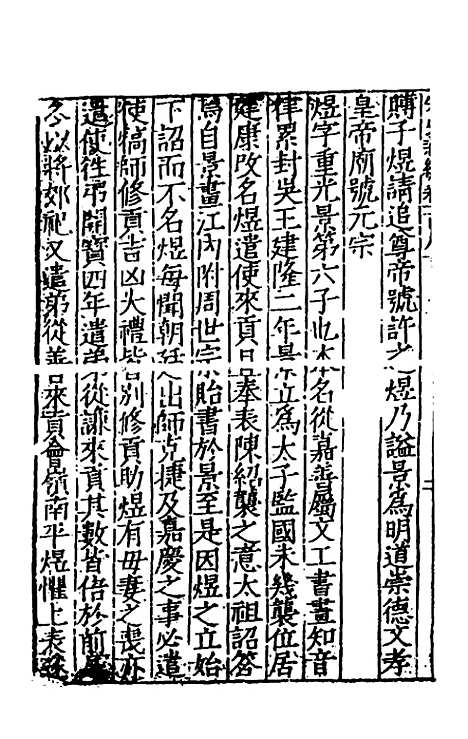 賻子煜請追尊帝號許之煜乃謚景爲明道崇德文孝
皇帝廟號元宗
煜字重光景第六子也本名從嘉善屬文工書畫知音
律累封吳王建隆二年景立爲太子監國未幾襲位居
建康改名煜遣使來貢且奉表陳紹襲之意太祖詔答
焉自景畫江內附周世宗貽書於景至是因煜之立始
下詔而不名煜每聞朝廷出師克捷及嘉慶之事必遣
使犒師修貢吉凶大禮皆別修貢助煜有母妻之喪亦
遣使徃弔開寶四年遣弟從謙來貢其數皆倍於前
今以將郊祀又遣弟從善來貢會嶺南平煜懼上表